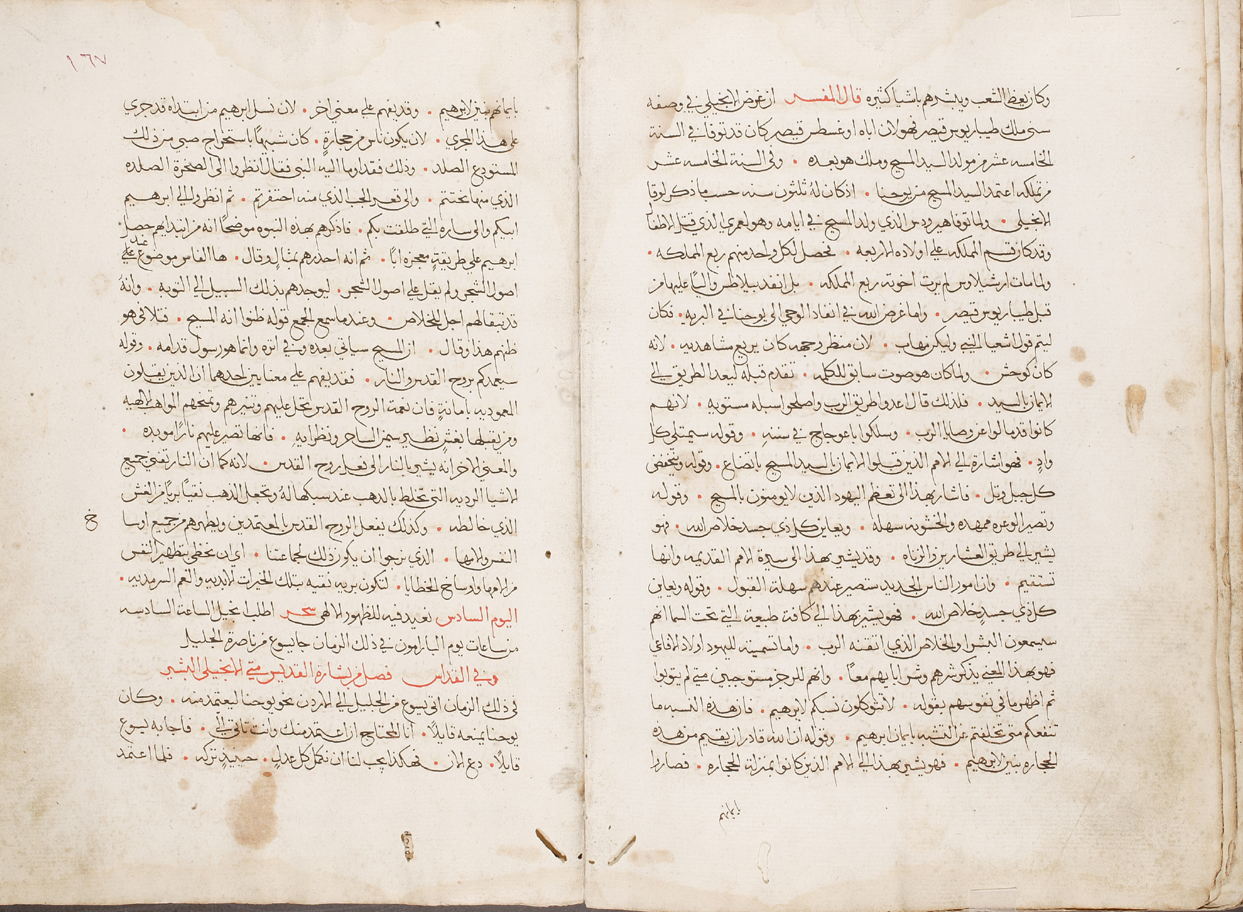 وكان يعظ الشعب ويبشرهم باشيا كثيره قال المفسر ان غرض الانجيلي في وصفه
سني ملك طيباريوس قيصر فهو لان اباه اوغسطس قيصر كان قد توفا في السنة
الخامسه عشر من مولد السيد المسيح وملك هو بعده • وفي السنة الخامسه عشر
من تملكه اعتمد السيد المسيح من يوحنا • اذ كان له ثلثون سنه حسب ما ذكر لوقا
الانجيلي • ولما توفا هيرودس الذي ولد المسيح في ايامه وهو لعمري الذي قتل الاطفال
وقد كان قسم المملكه على اولاده الاربعه • فحصل لكل واحد منهم ربع المملكه •
ولما مات ارشيلاوس لم يرث اخوته ربع المملكه • بل انفد بيلاطس واليًا عليها من
قبل طيباريوس قيصر • واما غرض الله في انفاد الوحي الى يوحنا في البريه • فكان
ليتم قول اشعيا النبي وليكن مهاب • لان منظر وجهه كان يريع مشاهديه • لانه
كان كوحش • ولما كان هو صوت سابق للكلمه • تقدم قبله ليعد الطريق الى
الايمان بالسيد • فلذلك قال اعدوا طريق الرب واصلحوا سبله مستويه • لانهم
كانوا قد مالوا عن وصايا الرب • وسلكوا باعوجاج في سننه • وقوله سيمتلي كل
وادٍ • فهو اشارة الى الامم الذين قبلوا الايمان بالسيد المسيح باتضاع • وقوله ويتخفض
كل جبل وتل • فاشار بهذا الى تعظم اليهود الذين لا يومنون بالمسيح • وقوله
وتصير الوعره ممهده والخشونه سهله • ويعاين كل ذي جسد خلاص الله • فهو
يشير الى طريق العشارين والزناه • وقد يشير بهذا الى سيرة الامم القديمه وانها
تستقيم • وان امور الناس الجديد ستصير عندهم سهلة القبول • وقوله ويعاين
كل ذي جسدٍ خلاص الله • فهو يشير بهذا الى كافة طبيعه التي تحت السما انهم
سيسمعون البشرا والخلاص الذي اتقنه الرب • واما تسميته لليهود اولاد الافاعي
فهو بهذا المعنى يذكر شرهم وشر ابايهم معًا • وانهم للرجز مستوجبي متى لم يتوبوا
ثم اظهر ما في نفوسهم بقوله • لا تتوكلون نسبكم لابرهيم • فان هذه النسبه ما
تنفعكم متى تخلفتم عن التشبه بايمان ابرهيم • وقوله ان الله قادر ان يقيم من هذه
الحجاره بنين لابرهيم • فهو يشير بهذا الى الامم الذين كانوا بمنزلة الحجاره • فصاروا
بايمانهم
١٦٧
بايمانهم بنين لابرهيم • وقد يفهم على معنى اخر • لان نسل ابرهيم من ابتداه قد جرى
على هذا المجرى • لان يكون ناس من حجارةٍ • كان شبيهًا باستخراج صبي من ذلك
المستودع الصلد • وذلك فقد اوما اليه النبي فقال انظروا الى الصخرة الصلده
الذي منها نحتتم • والى قعر الجب الذي منه احتفرتم • ثم انظروا الى ابرهيم
ابيكم والى ساره التي طلقت بكم • فاذكرهم بهذه النبوه موضحًا انه من ابتدايهم حصل
ابرهيم على طريقةٍ معجزه ابًا • ثم انه احدرهم بمثالٍ وقال • ها الفاس موضوع على عند
اصول الشجر ولم يقل على اصول الشجر • ليوجدهم بذلك السبيل الى التوبه • وانهُ
قد بقا لهم اجل للخلاص • وعندما سمع الجمع قوله ظنوا انه المسيح • فتلافى هو
ظنهم هذا وقال • ان المسيح سياتي بعده وفي اثره وانما هو رسول قدامه • وقوله
سيعمدكم بروح القدس والنار • فقد يفهم على معنايين احدهما ان الذين يقبلون
المعموديه بامانةٍ فان نعمة الروح القدس تحل عليهم وتنيرهم وتمنحهم المواهب الالهيه
ومن يقبلها بغشٍ نظير سيمن الساحر ونظرايه • فانها تصير عليهم نارًا موبده •
والمعنى الاخر انه يشير بالنار الى فعل روح القدس • لانه كما ان النار تفني جميع
الاشيا الرديه التي تختلط بالذهب عند سبكها لهُ وتجعل الذهب نقيًا بريًا من الغش
الذي خالطه • وكذلك يفعل الروح القدس بالمعتمدين ويطهرهم من جميع اوسا
خ
النفس والامها • الذي نرجوا ان يكون ذلك لجماعتنا • اي ان نحظى بتطهير النفس
من الامها واوساخ الخطايا • لتكون بريه نقيه بتلك الخيرات الابديه والنعم السرمديه •
اليوم السادس نعيد فيه للظهور الالهي سحر اطلب انجيل الساعة السادسه
من ساعات يوم البارامون في ذلك الزمان جا يسوع من ناصرة الجليل
وفي القداس فصل من بشارة القديس متى الانجيلي البشير
في ذلك الزمان اتى يسوع من الجليل الى الاردن نحو يوحنا ليعتمد منه • وكان
يوحنا يمنعه قايلاً • انا المحتاج ان اعتمد منك وانت تاتي اليَّ • فاجابه يسوع
قايلاً • دع الان • فهكذا يجب لنا ان نكمل كل عدلٍ • حينيذٍ تركه • فلما اعتمد